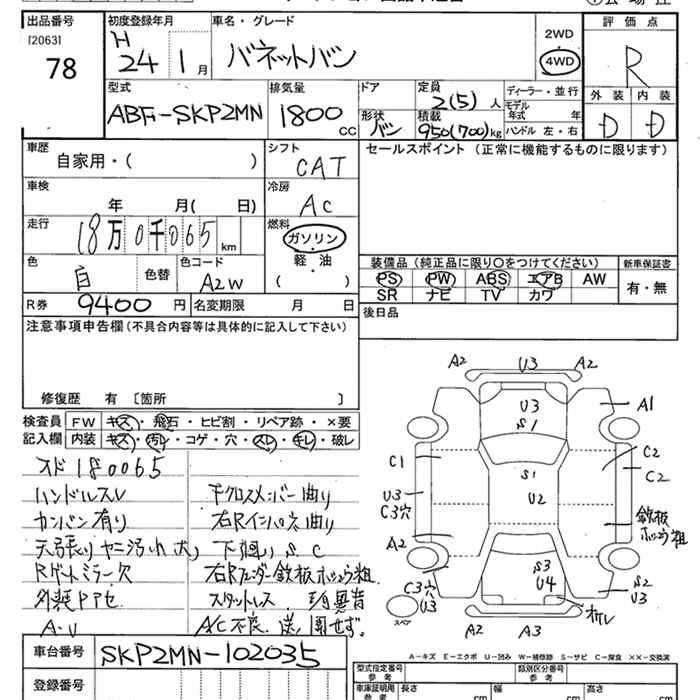 出品番号
[2063]
78
初度登録年月
H
24 1月
車名・グレード
バネットバン
2WD
4WD
評価点
R
型式
ABF-SKP2MN
排気量
1800
CC
ドア
形状
バン
定員
2(5)人
積載
950(700)kg
ディーラー・並行
モデル
年式 年
ハンドル 左・右
外装
D
内装
D
車歴
自家用・( )
シフト
CAT
セールスポイント (正常に機能するものに限ります)
車検
年 月( 日)
冷房
AC
走行
18万0千065km
燃料
ガソリン
軽・油
( )
色
白
色替
色コード
A2W
装備品(純正品に限り〇をつけてください)
PS PW ABS エアB AW
SR ナビ TV カワ
新車保証書
有・無
R券 9400円
名変期限 月 日
後日品
注意事項申告欄(不具合内容等は具体的に記入して下さい)
修復歴 有 [箇所 ]
検査員
記入欄
FW キズ・飛石・ヒビ割・リペア跡・×要
内装 キズ・汚レ・コゲ・穴・スレ・キレ・破レ
スド180065
ハンドルスレ
カンバン有り
天張りヤニ汚れ大
Rゲートミラー欠
A・U
下クロスメンバー曲り
右Rインパネ曲り
下廻りS.C
右Rフェンダー鉄板ボッコウ粗
スタットレス
A/C不良
A2 U3 A2
U3
S1
A1
C1
S1
C2
C2
U3
C3穴
U2
鉄板
ボッコウ粗
A2
S3
U4
C3穴
U3
スペア
S2
U3
オレ
A2 A3
A-キズ E-エクボ U-凹み W-補修跡 S-サビ C-腐食 XX-交換済
車台番号
SKP2MN-102035
登録番号
型式指定番号
参考
類別区分番号
参考
車庫証明用
参考
長さ cm
幅 cm
高さ cm